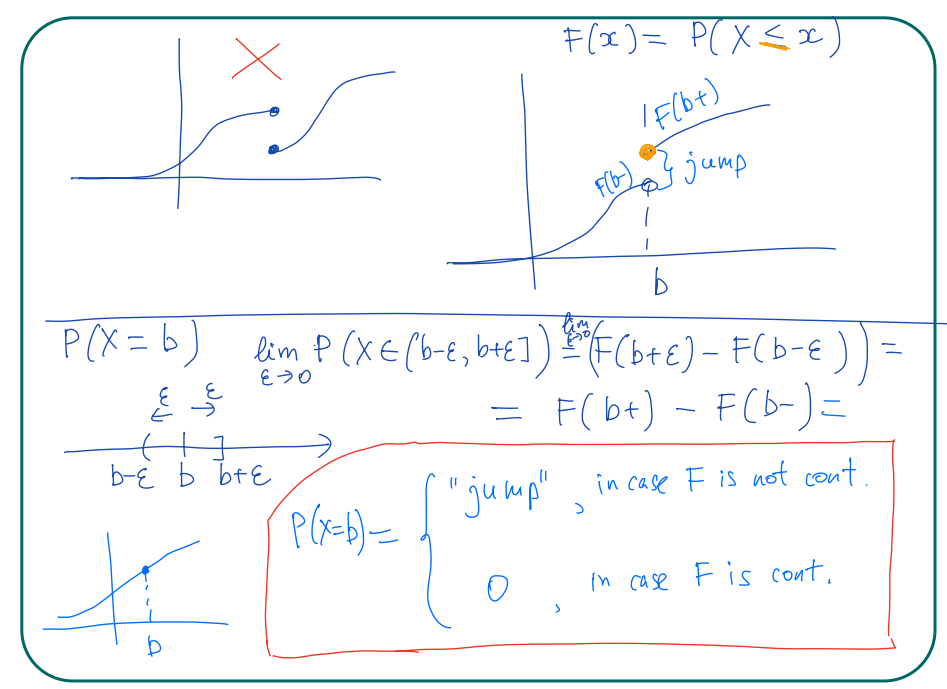 F(x) = P(X ≤ x)
F(b+)
F(b-)
jump
b
P(X = b) lim ε→0 P(X ∈ (b-ε, b+ε]) = lim ε→0 (F(b+ε) - F(b-ε)) =
= F(b+) - F(b-) =
ε ε
b-ε b b+ε
P(X=b) = { "jump", in case F is not cont.
0, in case F is cont.
b